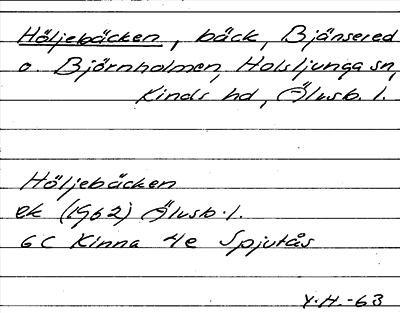 Höljebäcken, bäck, Bjänsered
o. Björnholmen, Holsljunga sn,
Kinds hd, Älvsb. l.
Höljebäcken
ek (1962) Älvsb. l.
6C Kinna 4e Spjutås
Y.H.-63